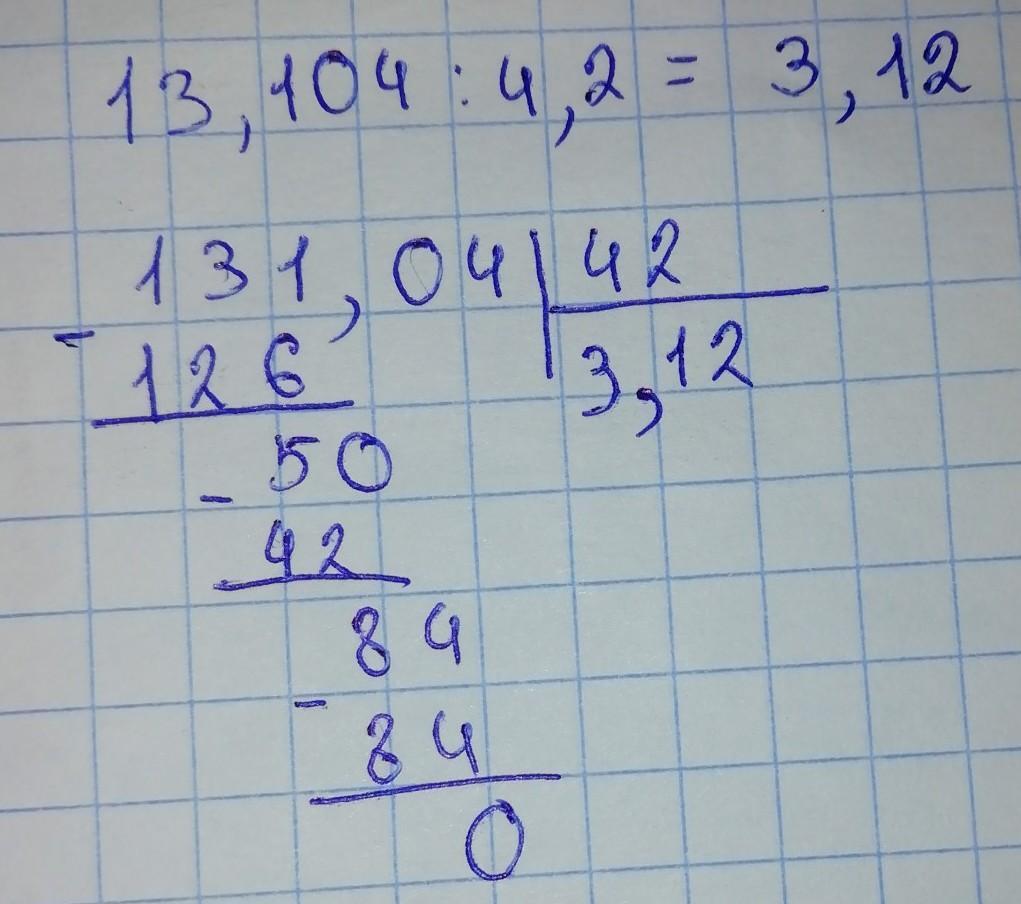 13,104 : 4,2 = 3,12
131,04 | 42
- 126 3,12
50
- 42
84
- 84
0